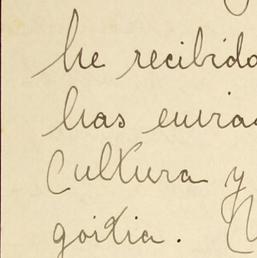 he recibido
has envia
Cultura y
goitia.